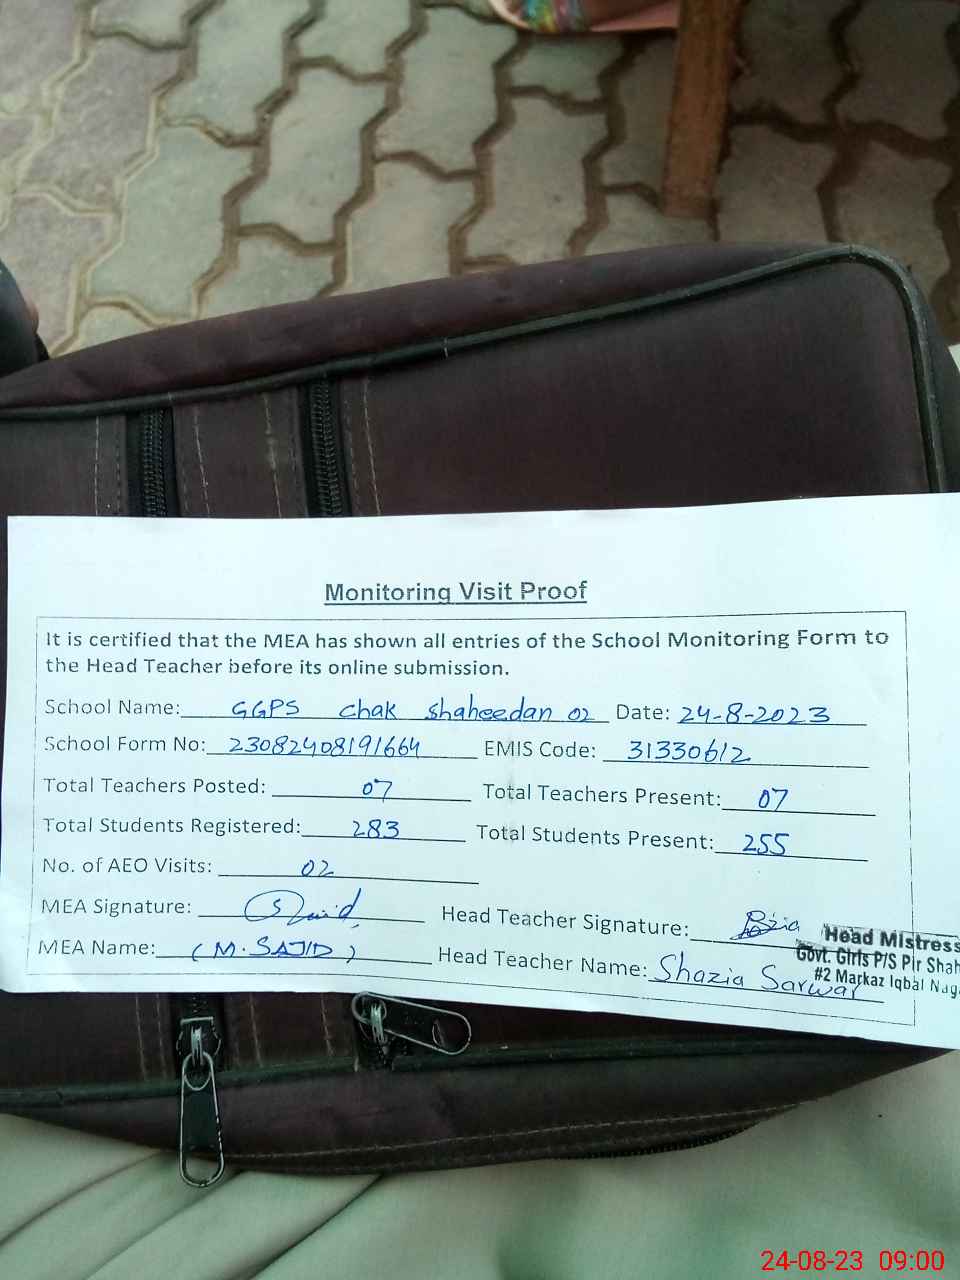 Monitoring Visit Proof
It is certified that the MEA has shown all entries of the School Monitoring Form to
the Head Teacher before its online submission.
School Name: GGPS Chak Shaheedan 02 Date: 24-8-2023
School Form No: 23082408191664 EMIS Code: 31330612
Total Teachers Posted: 07 Total Teachers Present: 07
Total Students Registered: 283 Total Students Present: 255
No. of AEO Visits: 02
MEA Signature: Head Teacher Signature:
MEA Name: (M. SAJID) Head Teacher Name: Shazia Sarwar
Head Mistress
Govt. Girls P/S Pir Shah
#2 Markaz Iqbal Nag
24-08-23 09:00